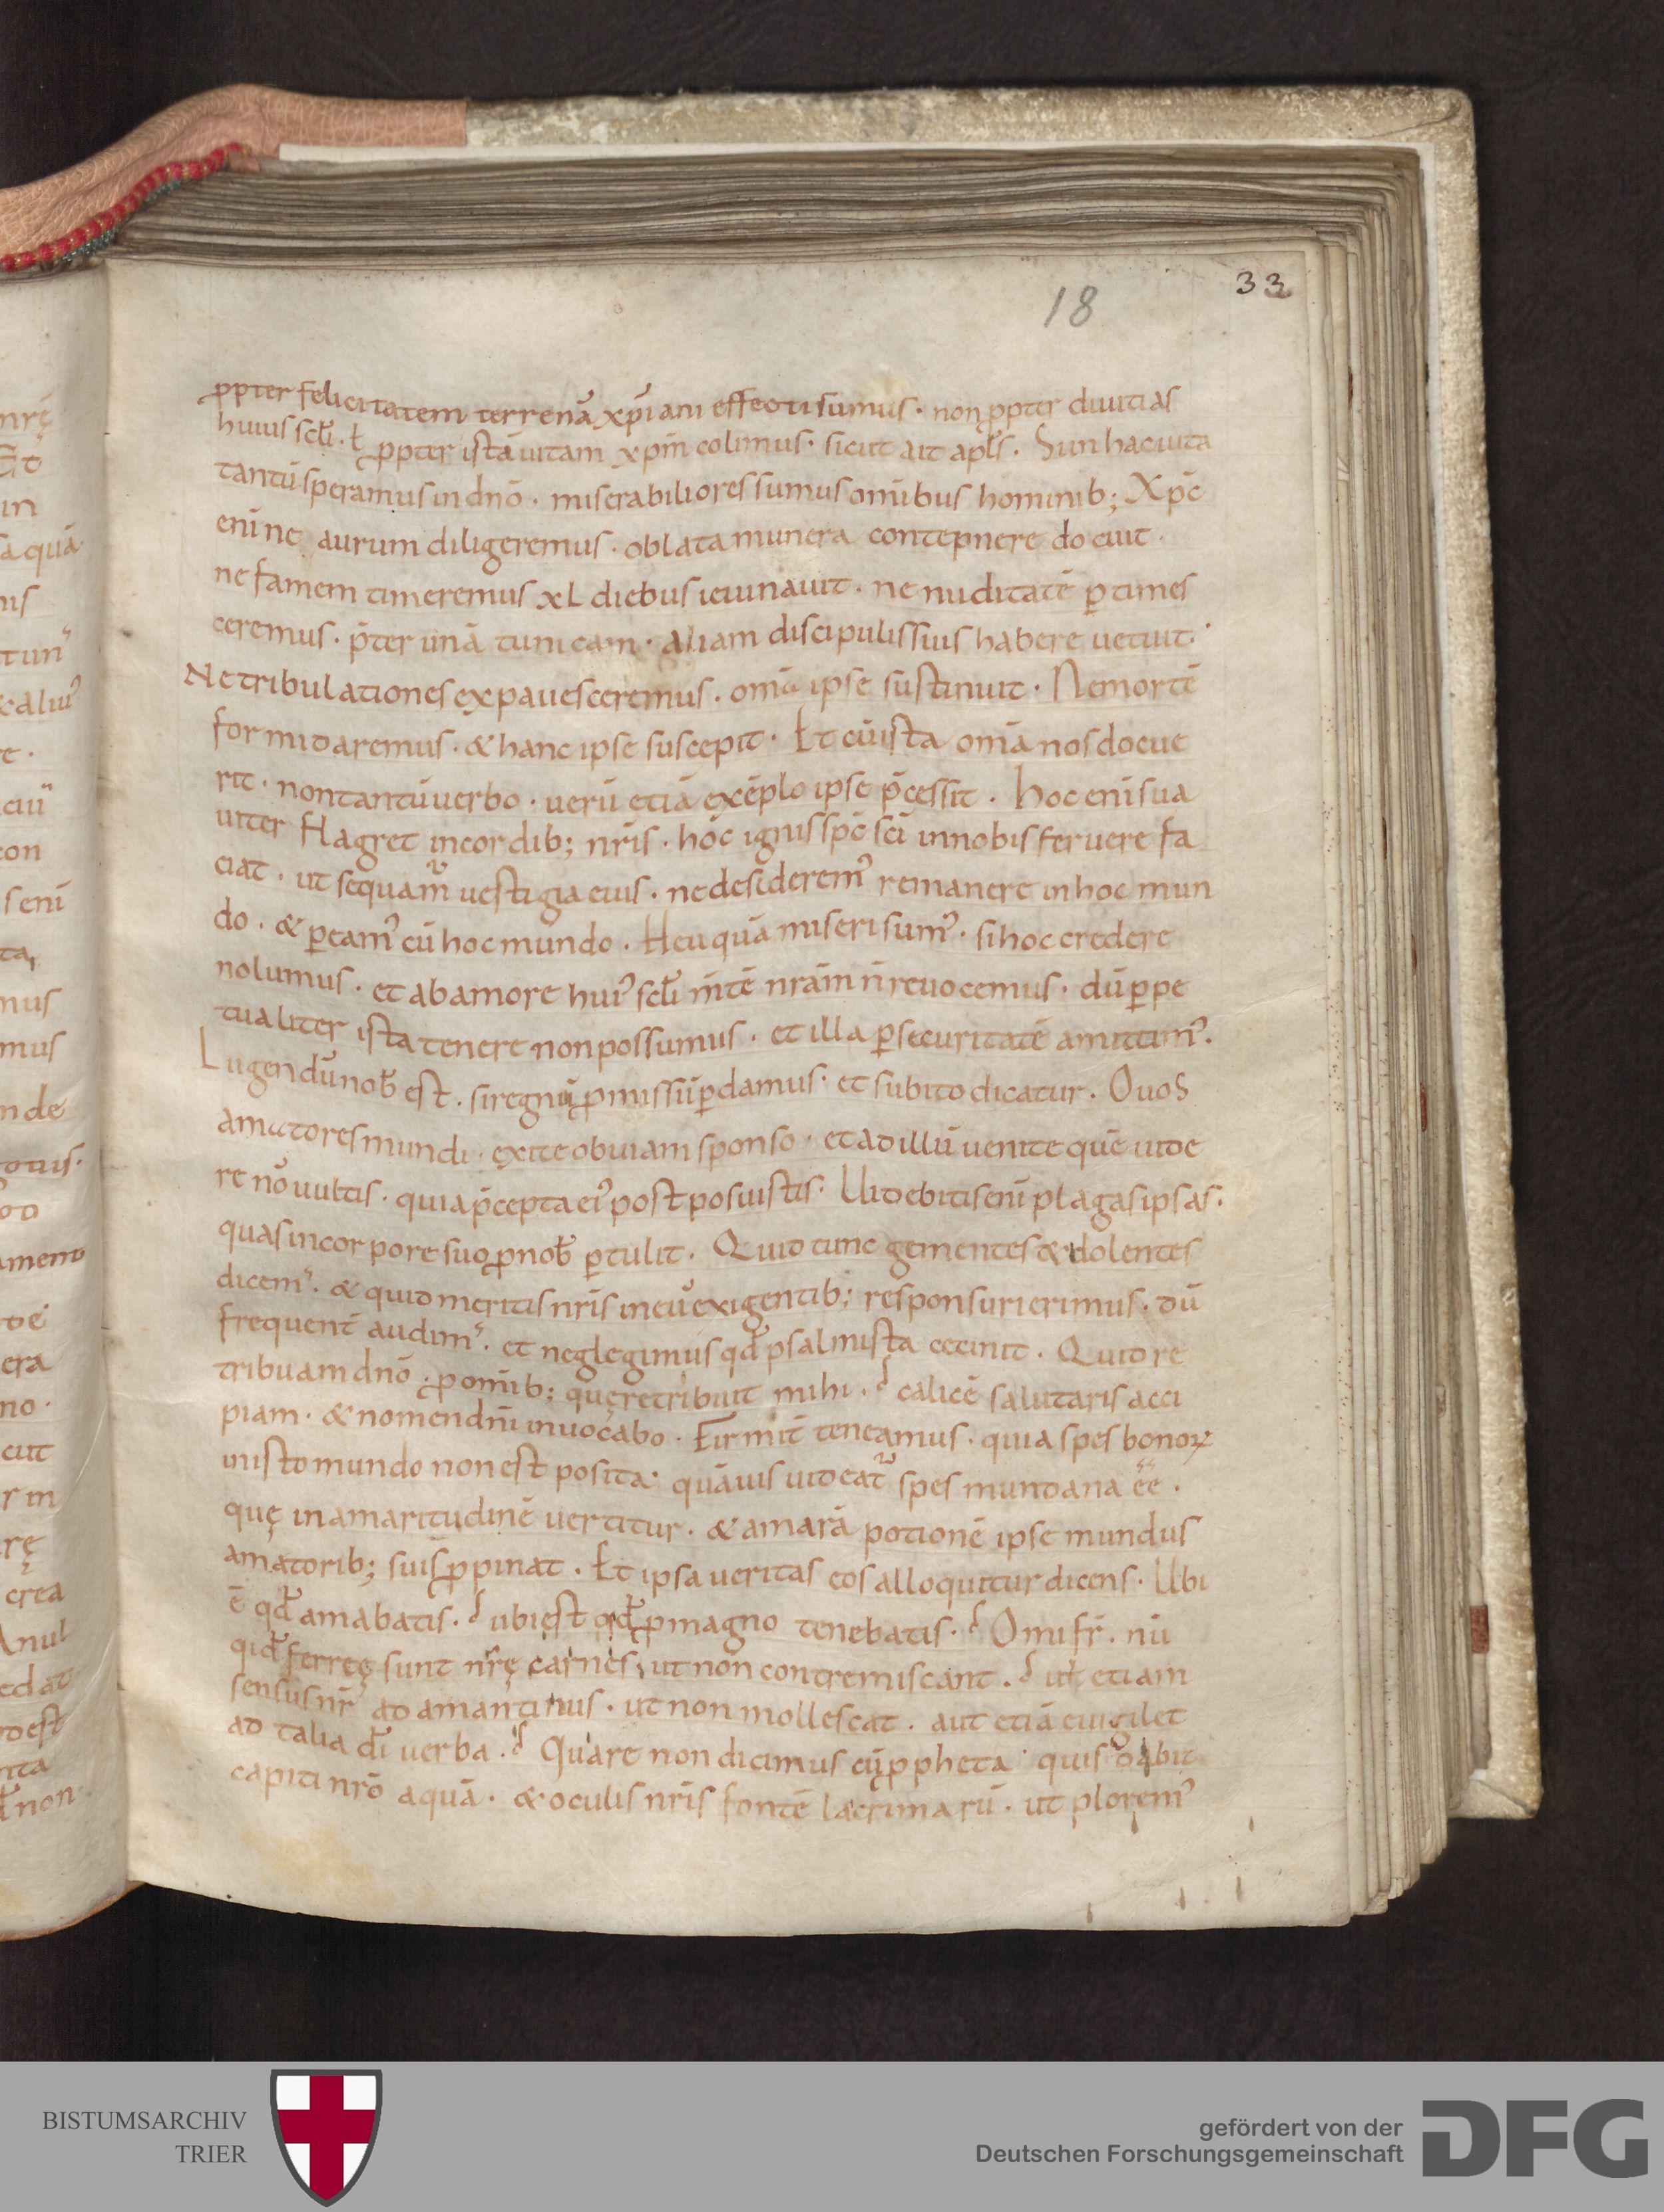 33
18
ꝓpter felicitatem terrenā xp̄iani effecti sumus · non ꝓpter diuitias
huius scl̄i · ł ꝓpter istā uitam xpm̄ colimus · sicut ait apl̄s · Si in hac uita
tantū speramus in dnō · miserabiliores sumus omībus hominib; Xpc̄
enī ne aurum diligeremus · oblata munera contepnere docuit ·
ne famem timeremus xl diebus ieiunauit · ne nuditatē ꝑtimes
ceremus · p̄ter unā tunicam · aliam discipulis suis habere uetuit ·
Ne tribulationes expauesceremus · omīa ipse sustinuit · Ne mortē
formidaremus · & hanc ipse suscepit · Et cū ista omīa nos docue
rit · non tantū uerbo · uerū etiā exēplo ipse p̄cessit · Hoc enī sua
uiter flagret in cordib; nrīs · hoc ignis spc̄ scī in nobis feruere fa
ciat · ut sequam̄ uestigia eius · ne desideremꝰ remanere in hoc mun
do · & ꝑeamꝰ cū hoc mundo · Heu quā miseri sumꝰ · si hoc credere
nolumus · et ab amore huiꝰ scl̄i m̄tē nrām n̄ reuocemus · dū ꝑpe
tualiter ista tenere non possumus · et illa ꝑ securitatē amittimꝰ ·
Lugendū nob̄ est · si regnū ꝓmissū ꝑdamus · et subito dicatur · O uos
amatores mundi · exite obuiam sponso · et ad illū uenite quē uide
re nō uultis · quia p̄cepta eiꝰ postposuistis · Uidebitis enī plagas ipsas ·
quas in corpore suo ꝓ nob̄ ꝑtulit · Quid tunc gementes & dolentes
dicemꝰ · & quid meritis nrīs in eū exigentib; responsuri erimus · dū
frequent̄ audimꝰ · et neglegimus qd̄ psalmista cecinit · Quid re
tribuam dnō ꝓ omīb; quę retribuit mihi · calicē salutaris acci
piam · & nomen dnī inuocabo · Firmit̄ teneamus · quia spes bonoꝝ
in isto mundo non est posita · quāuis uideat̄ spes mundana ēē ·
quę in amaritudinē uertitur · & amarā potionē ipse mundus
amatorib; suis ꝓpinat · Et ipsa ueritas eos alloquitur dicens · Ubi
ē qd̄ amabatis · ubi est qd̄ ꝓ magno tenebatis · O mi fr̄ · nū
qid̄ ferreę sunt nrę̄ carnes, ut non contremiscant · ul̄ etiam
sensus nr̄ adamantinus · ut non mollescat · aut etiā euigilet
ad talia dī uerba · Quare non dicimus cū ꝓpheta · quis dabit
capiti nrō aquā · & oculis nrīs fontē lacrimarū · ut ploremꝰ
BISTUMSARCHIV
TRIER
gefördert von der
Deutschen Forschungsgemeinschaft
DFG